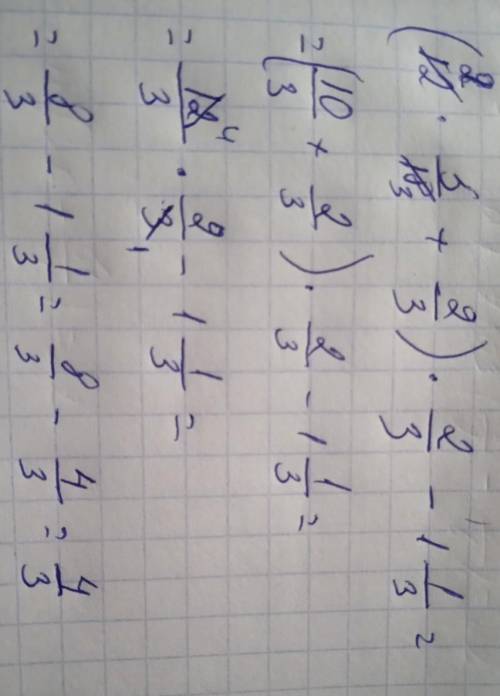 (12² · 5/18₃ + 2/3) · 2/3 - 1 1/3 =
= (10/3 + 2/3) · 2/3 - 1 1/3 =
= 12⁴/3 · 2/3₁ - 1 1/3 =
= 8/3 - 1 1/3 = 8/3 - 4/3 = 4/3